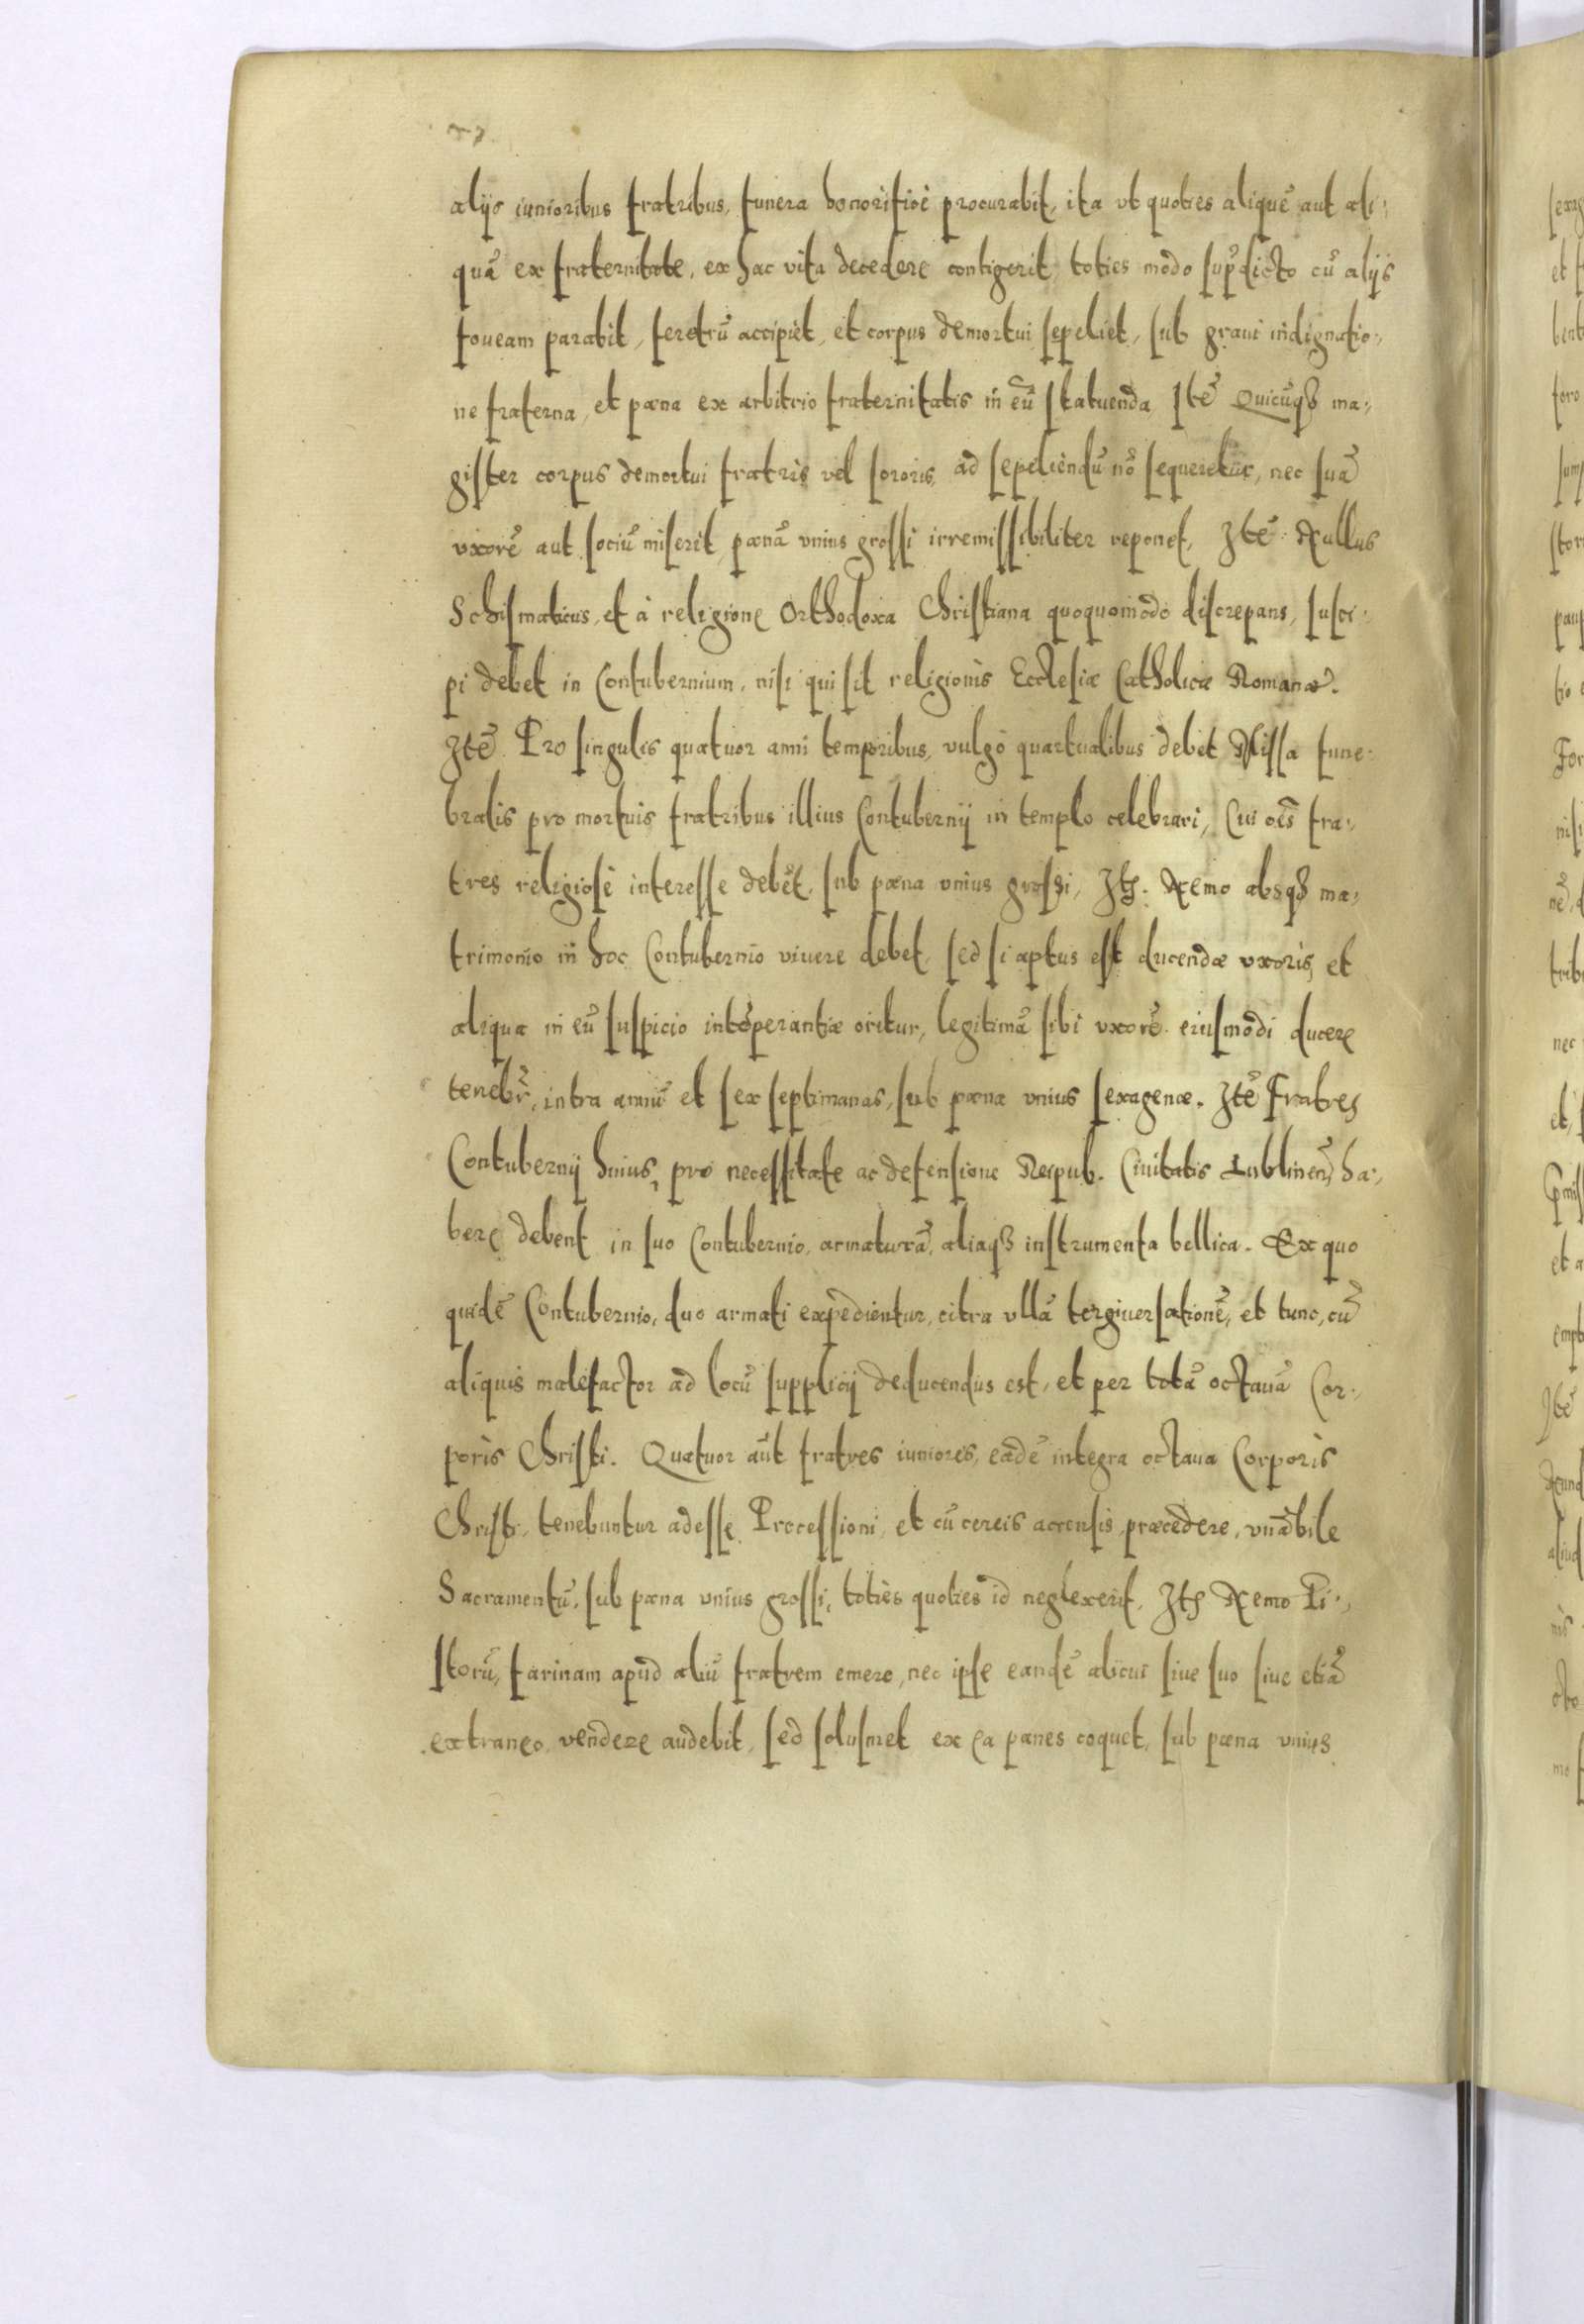 alijs iunioribus fratribus, funera honorificè procurabit, ita vt quoties aliquē aut ali-
quā ex fraternitate, ex hac vita decedere contigerit, toties modo sup̄dicto cū alijs
foueam parabit, feretrū accipiet, et corpus demortui sepeliet, sub graui indignatio-
ne fraterna, et pœna ex arbitrio fraternitatis in eū statuenda. Itē Quicūqȝ ma-
gister corpus demortui fratris vel sororis, ad sepeliendū nō sequeretur, nec suā
vxorē aut sociū miserit, pœnā vnius grossi irremissibiliter reponet, Itē Nullus
Schismaticus, et à religione Orthodoxa Christiana quoquomodo discrepans, susci-
pi debet in Contubernium, nisi qui sit religionis Ecclesiæ Catholicæ Romanæ.
Itē Pro singulis quatuor anni temporibus, vulgò quartualibus debet Missa fune-
bralis pro mortuis fratribus illius Contubernij in templo celebrari, Cui oēs fra-
tres religiosè interesse debēt, sub pœna vnius grossi, Itē. Nemo absqȝ ma-
trimonio in hoc Contubernio viuere debet, sed si aptus est ducendæ vxoris, et
aliqua in eū suspicio intēperantiæ oritur, legitimā sibi vxorē eiusmodi ducere
tenebr̄, intra annū et sex septimanas, sub pœna vnius sexagenæ. Itē Fratres
Contubernij huius, pro necessitate ac defensione Reipub. Ciuitatis Lublineñ, ha-
bere debent in suo Contubernio, armaturā, aliaqȝ instrumenta bellica. Ex quo
quidē Contubernio, duo armati expedientur, citra vllā tergiuersationē, et tunc, cū
aliquis malefactor ad locū supplicij deducendus est, et per totā octauā Cor-
poris Christi. Quatuor aūt fratres iuniores, eādē integra octaua Corporis
Christi, tenebuntur adesse Processioni, et cū cereis accensis præcedere, vn̄abile
Sacramentū, sub pœna vnius grossi, toties quoties id neglexerit, Itē Nemo Pi-
storū, farinam apud aliū fratrem emere, nec ipse eandē alicui siue suo siue etiā
extraneo, vendere audebit, sed solusmet ex ea panes coquet, sub pœna vnius